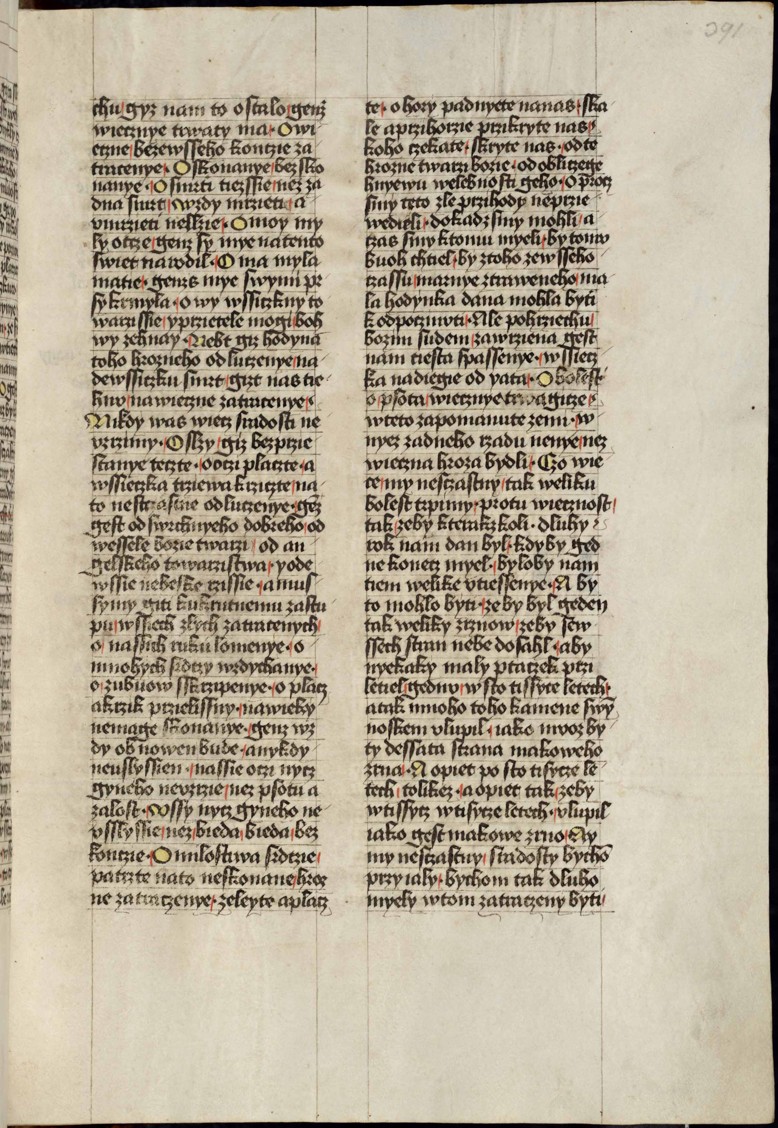 391
chu gyz nam to ostalo genz
wiecznye trwaty ma O wi
eczne bezewsseho koncze za
traczenye O skonanye bez sko
nanye O smrti tiezssie nez za
dna smrt wzdy mrzieti a
vmrzieti neslzie O moy my
ly otcze genz sy mye na tento
swiet narodil O ma myla
matie genzs mye swymi pr
sy krmyla o wy wssiczkny to
warzissie y przietele mogi boh
wy zehnay Nebt giz hodyna
toho hrozneho odluczenye na
dewssiczku smrt gizt nas tie
hne na wieczne zatraczenye
Nikdy was wiecz s radosti ne
vzrzimy O slzy giz bez przie
stanye teczte o oczi placzte a
wssieczka trziewa krziczte na
to nestrastne odluczenye gez
gest od swrchnyeho dobreho od
wessele bozie twarzi od an
gelskeho towarzistwa y ode
wssie nebeske rzissie a mus
symy giti k ukrutnemu zastu
pu wssiech zlych zatraczenych
o nassich ruku lomenye o
mnohych srdczy wzdychanye
o zubuow sskrzipenye o placz
a krzik przielissny na wieky
nemage skonanye genz wz
dy obnowen bude a nykdy
neuslyssien nassie oczi nycz
gyneho nevzrzie nez psotu a
zalost wssy nycz gyneho ne
vsslyssie nez bieda bieda bez
koncze O milostiwa srdczie
patrzte na to neskonane hroz
ne zatraczenye zeleyte a placz
te o hory padnyete na nas ska
le a przihorzie przikryte nas
koho czekate skryte nas od te
hrozne twarzi bozie od obliczege
hnyewu welebnosti geho O procz
smy teto zle przihody neprzie
wedieli dokadz smy mohli a
czas smy k tomu myeli by tomu
buoh chtiel by z toho ze wsseho
czassu marnye ztraweneho ma
la hodynka dana mohla byti
k odpoczinuti Ale pohrziechu
bozim sudem zawrziena gest
nam tiesta spassenye wssiecz
ka nadiegie od yata O bolest
o psota wiecznye trwagicze
w teto zapomanute zemi w
nyez zadneho rzadu nenye nez
wieczna hroza bydli Czo wie
ce my nesczastny tak weliku
bolest trpimy protu wiecznost
tak zeby kterakzkoli dluhy
rok nam dan byl kdyby ged
ne konecz myel byloby nam
tiem welike vtiessenye A by
to mohlo byti ze by byl geden
tak weliky zrznow zeby sew
ssech stran nebe dosahl aby
nyekaky maly ptaczek przi
letiel gednu w sto tissycze letech
a tak mnoho toho kamene swy
noskem vlupil iako mvoz by
ty dessata strana makoweho
zrna A opiet po sto tisycze le
tech tolikez a opiet tak zeby
w tissycz w tisycze letech vlupil
iako gest makowe zrno Ay
my nesczastny s radosty bycho
przyialy bychom tak dluho
myely w tom zatraczeny byti